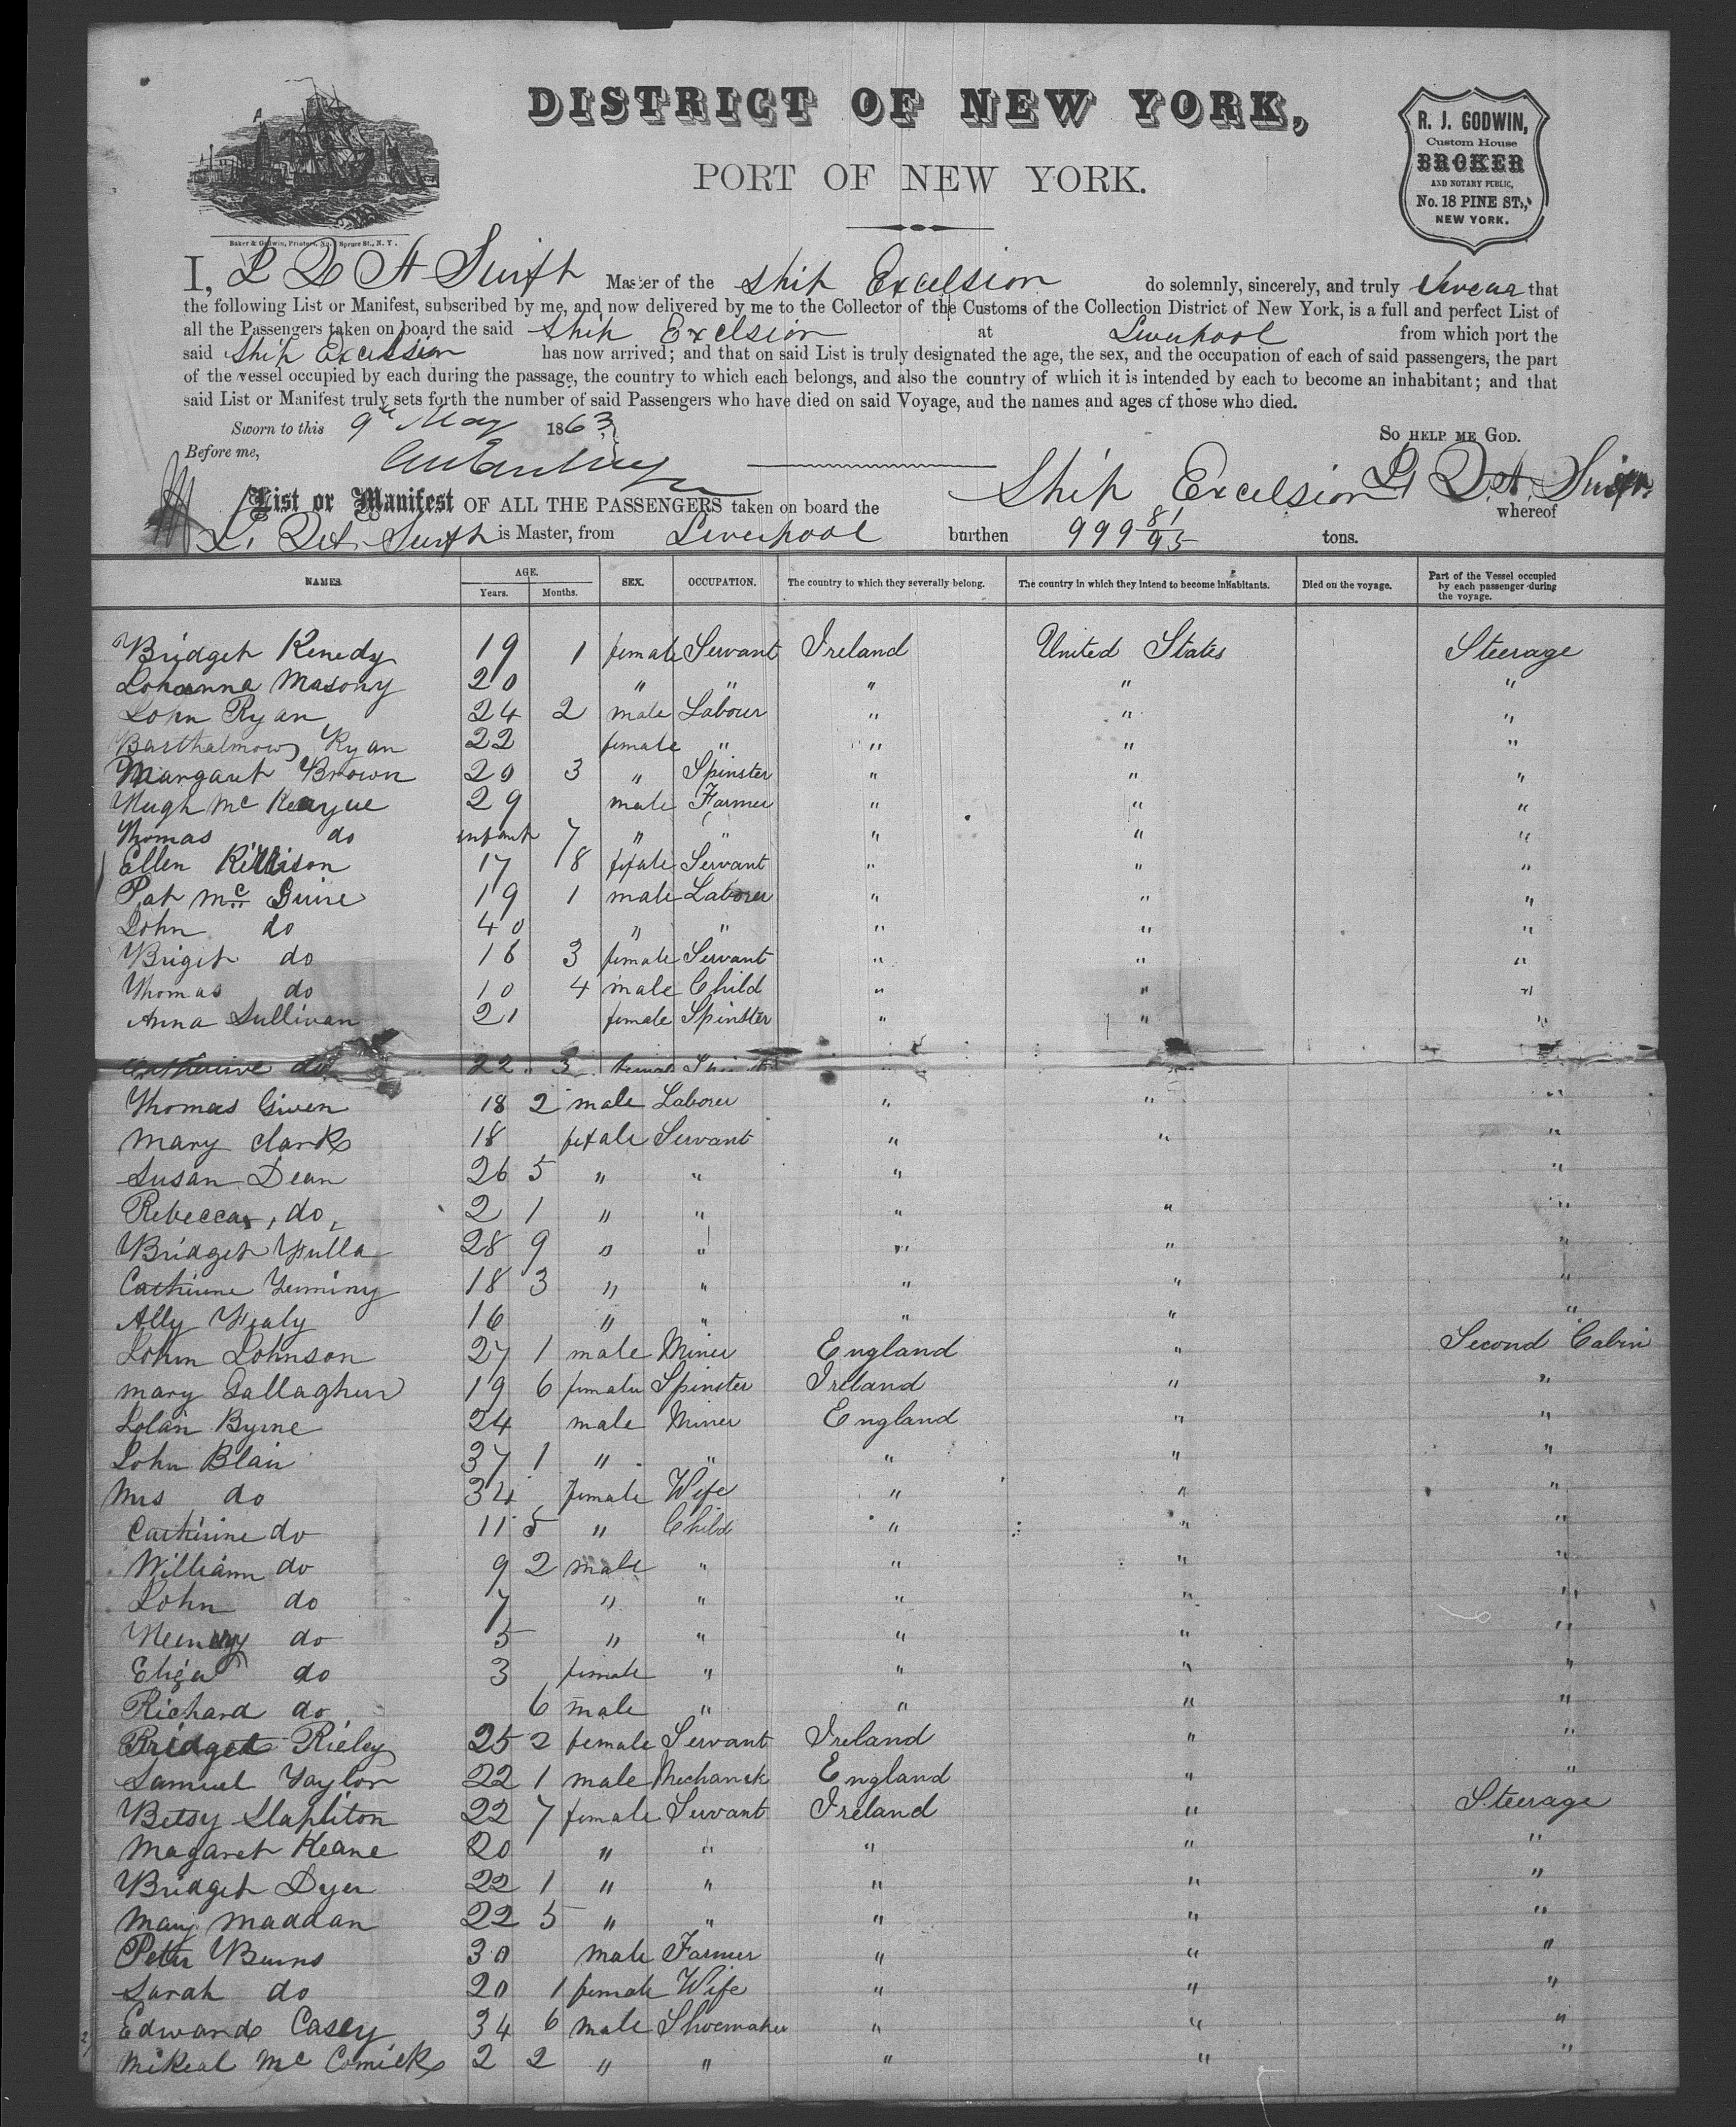 DISTRICT OF NEW YORK,
PORT OF NEW YORK.
R. J. GODWIN,
Custom House
BROKER
AND NOTARY PUBLIC,
No. 18 PINE ST.,
NEW YORK.
Baker & Godwin, Printers, No. 1 Spruce St., N. Y.
I, Swift Master of the Ship Excelsior do solemnly, sincerely, and truly swear that
the following List or Manifest, subscribed by me, and now delivered by me to the Collector of the Customs of the Collection District of New York, is a full and perfect List of
all the Passengers taken on board the said Ship Excelsior at Liverpool from which port the
said Ship Excelsior has now arrived; and that on said List is truly designated the age, the sex, and the occupation of each of said passengers, the part
of the vessel occupied by each during the passage, the country to which each belongs, and also the country of which it is intended by each to become an inhabitant; and that
said List or Manifest truly sets forth the number of said Passengers who have died on said Voyage, and the names and ages of those who died.
Sworn to this 9th May 1863
So help me God.
Before me,
Swift
List or Manifest OF ALL THE PASSENGERS taken on board the Ship Excelsior whereof
Swift is Master, from Liverpool burthen 999 81/95 tons.
NAMES. AGE. Years. Months. SEX. OCCUPATION. The country to which they severally belong. The country in which they intend to become inhabitants. Died on the voyage. Part of the Vessel occupied by each passenger during the voyage.
Bridget Kenedy 19 1 female Servant Ireland United States Steerage
Johanna Masony 20 " " " " "
John Ryan 24 2 male Labour " " "
Barthalmow Ryan 22 female " " " "
Margaut Brown 20 3 " Spinster " " "
Hugh Mc 29 male Farmer " " "
Thomas do infant 7 " " " " "
Ellen 17 8 female Servant " " "
Pat Mc Guire 19 1 male Laborer " " "
John do 40 " " " " "
Briget do 18 3 female Servant " " "
Thomas do 10 4 male Child " " "
Anna Sullivan 21 female Spinster " " "
Catherine do 22 3 female
Thomas Given 18 2 male Laborer " " "
Mary Clark 18 female Servant " " "
Susan Dean 26 5 " " " "
Rebecca, do, 2 1 " " " " "
Bridget 28 9 " " " " "
Catherine 18 3 " " " " "
Ally Healy 16 " " " " "
John Johnson 27 1 male Miner England " Second Cabin
Mary Gallagher 19 6 female Spinster Ireland " "
Byrne 24 male Miner England " "
John Blair 37 1 " " " " "
Mrs do 34 female Wife " " "
Catherine do 11 5 " Child " " "
William do 9 2 male " " " "
John do 7 " " " " "
Henry do 5 " " " " "
Eliza do 3 female " " " "
Richard do 6 male " " " "
Bridget Rieley 25 2 female Servant Ireland " "
Samuel Taylor 22 1 male Mechanik England " "
Betsy Stapliton 22 7 female Servant Ireland " Steerage
Magaret Keane 20 " " " " "
Bridget Dyer 22 1 " " " " "
Mary Maddan 22 5 " " " " "
Peter Burns 30 male Farmer " " "
Sarah do 20 1 female Wife " " "
Edward Casey 34 6 male Shoemaker " " "
Mikeal Mc Comick 2 2 " " " " "